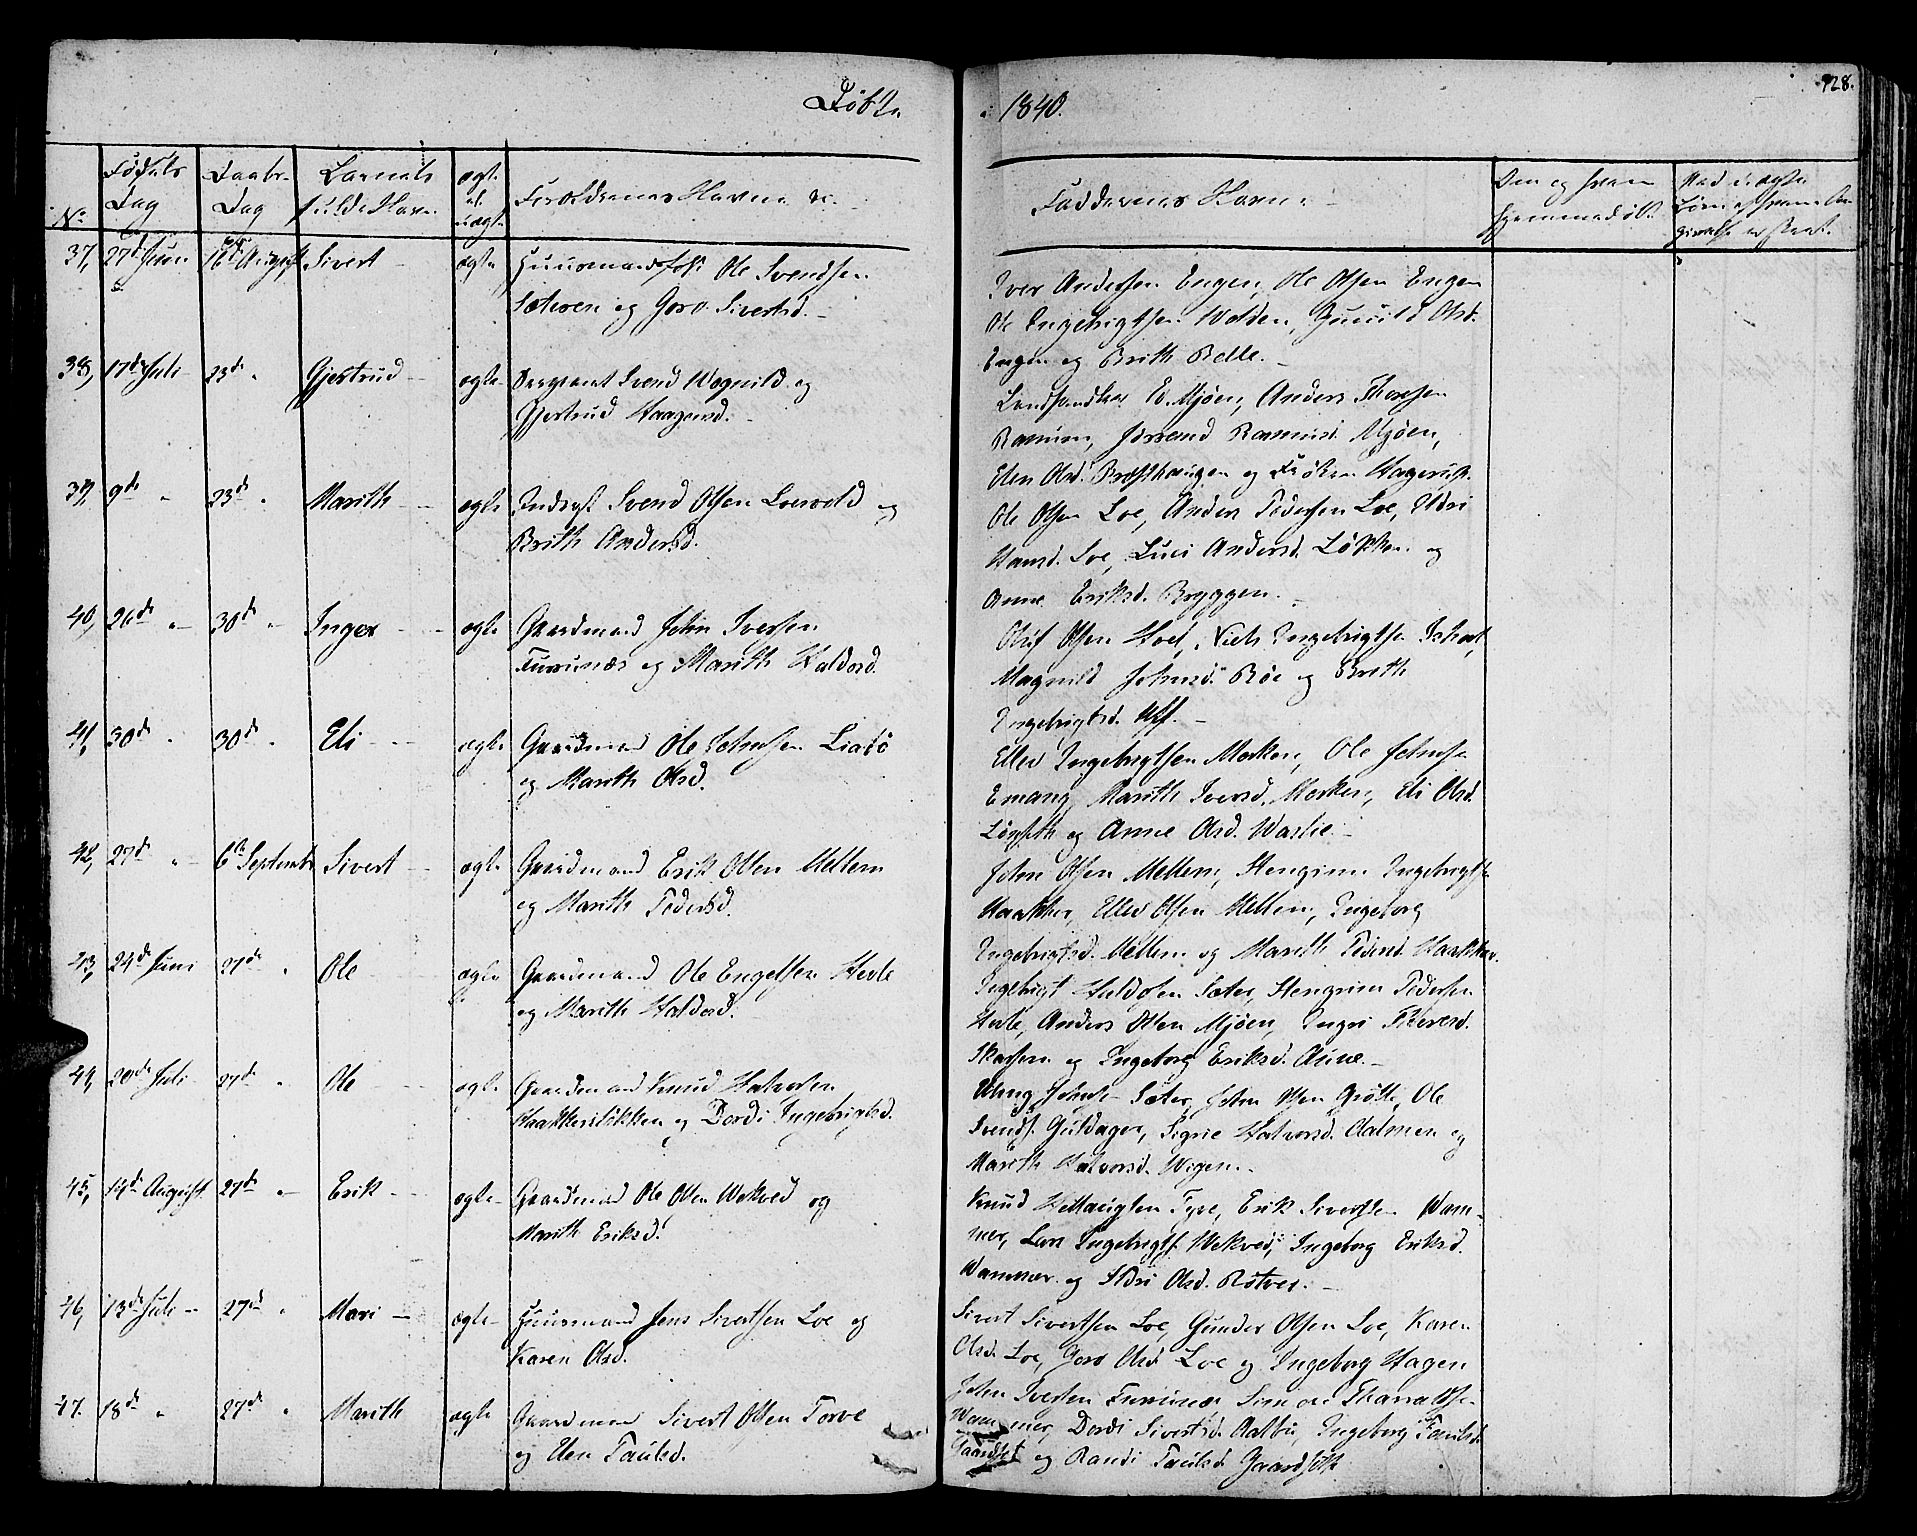 Døbte
i 1840.
928.
No
Fødsels
Dag
Daabs-
Dag
Barnets
fulde Navn
ægte
el.
uægte
Forældrenes Navne &c.
Faddernes Navne
37, 27de Juni 16de August Sivert ægte Huusmandsfolk Ole Svendsen
Sæteren og Goro Sivertsd.
Iver Andersen Engen, Ole Olsen Engen
Ole Ingebrigtsen Volden, Gunild Olsd.
Engen og Brith Belle.
38, 17de Juli 23de " Gjertrud ægte Sergeant Svend Wognild og
Gjertrud Haagensd.
Landhandler E. Mjøen, Anders Thoresen
Ramum, Jorrend Rasmusd. Mjøen,
Elen Olsd. Brosthaugen og Frøken Hagerup.
39, 9de " 23de " Marith ægte Inderst Svend Olsen Loevold og
Brith Andersd.
Ole Olsen Loe, Anders Pedersen Loe, Ildri
Hansd. Loe, Luci Andersd. Løkken og
Anne Eriksd. Bryggen.
40, 26de " 30de " Inger ægte Gaardmand John Iversen
Furunæs og Marith Haldorsd.
Oluf Olsen Hoel, Niels Ingebrigtsen
Magnild Johnsd. Böe og Brith
Ingebrigtsd.
41, 30de " 30de " Eli ægte Gaardmand Ole Johnsen Liabö
og Marith Olsd.
Ellev Ingebrigtsen Morken, Ole Johnsen
Emang, Marith Iversd. Morken, Eli Olsd.
Lönseth og Anne Olsd. Warlie.
42, 27de " 6te September Sivert ægte Gaardmand Erik Olsen Mellem
og Marith Pedersd.
John Olsen Mellem, Stengrim Ingebrigtsen
Haakker, Ellev Olsen Mellem, Ingeborg
Ingebrigtsd. Mellem og Marith Pedersd. Haakker.
43, 24de Juni 27de " Ole ægte Gaardmand Ole Engelsen Hevle
og Marith Haldorsd.
Ingebrigt Haldosen Sæter, Stengrim Pedersen
Hevle, Anders Olsen Mjøen, Ingri Thoresd.
Skarsem og Ingeborg Eriksd. Aune.
44, 20de Juli 27de " Ole ægte Gaardmand Knud Halvorsen
Haakkerløkken og Dordi Ingebrigtsd.
Elling Johnsen Sæter, John Olsen Grötte, Ole
Svends. Guldager, Sigrie Halvorsd. Aalmen og
Marith Halvorsd. Wigen.
45, 14de August 27de " Erik ægte Gaardmand Ole Olsen Wekved og
Marith Eriksd.
Knud Tyve, Erik Sivertsen Wam-
mer, Lars Ingebrigts. Wekved, Ingeborg Eriksd.
Wammer og Ildri Olsd. Rotver.
46, 13de Juli 27de " Mari ægte Huusmand Jens Sivertsen Loe og
Karen Olsd.
Sivert Sivertsen Loe, Gunder Olsen Loe, Karen
Olsd. Loe, Goro Olsd. Loe og Ingeborg Hagen
47. 18de " 27de " Marith ægte Gaardmand Sivert Olsen Torve
og Elen Paulsd.
John Iversen Furunæs
Wammer, Dordi Sivertsd. Aalbu, Ingeborg Paulsd.
Gaardset og Randi Paulsd. Gaardseth